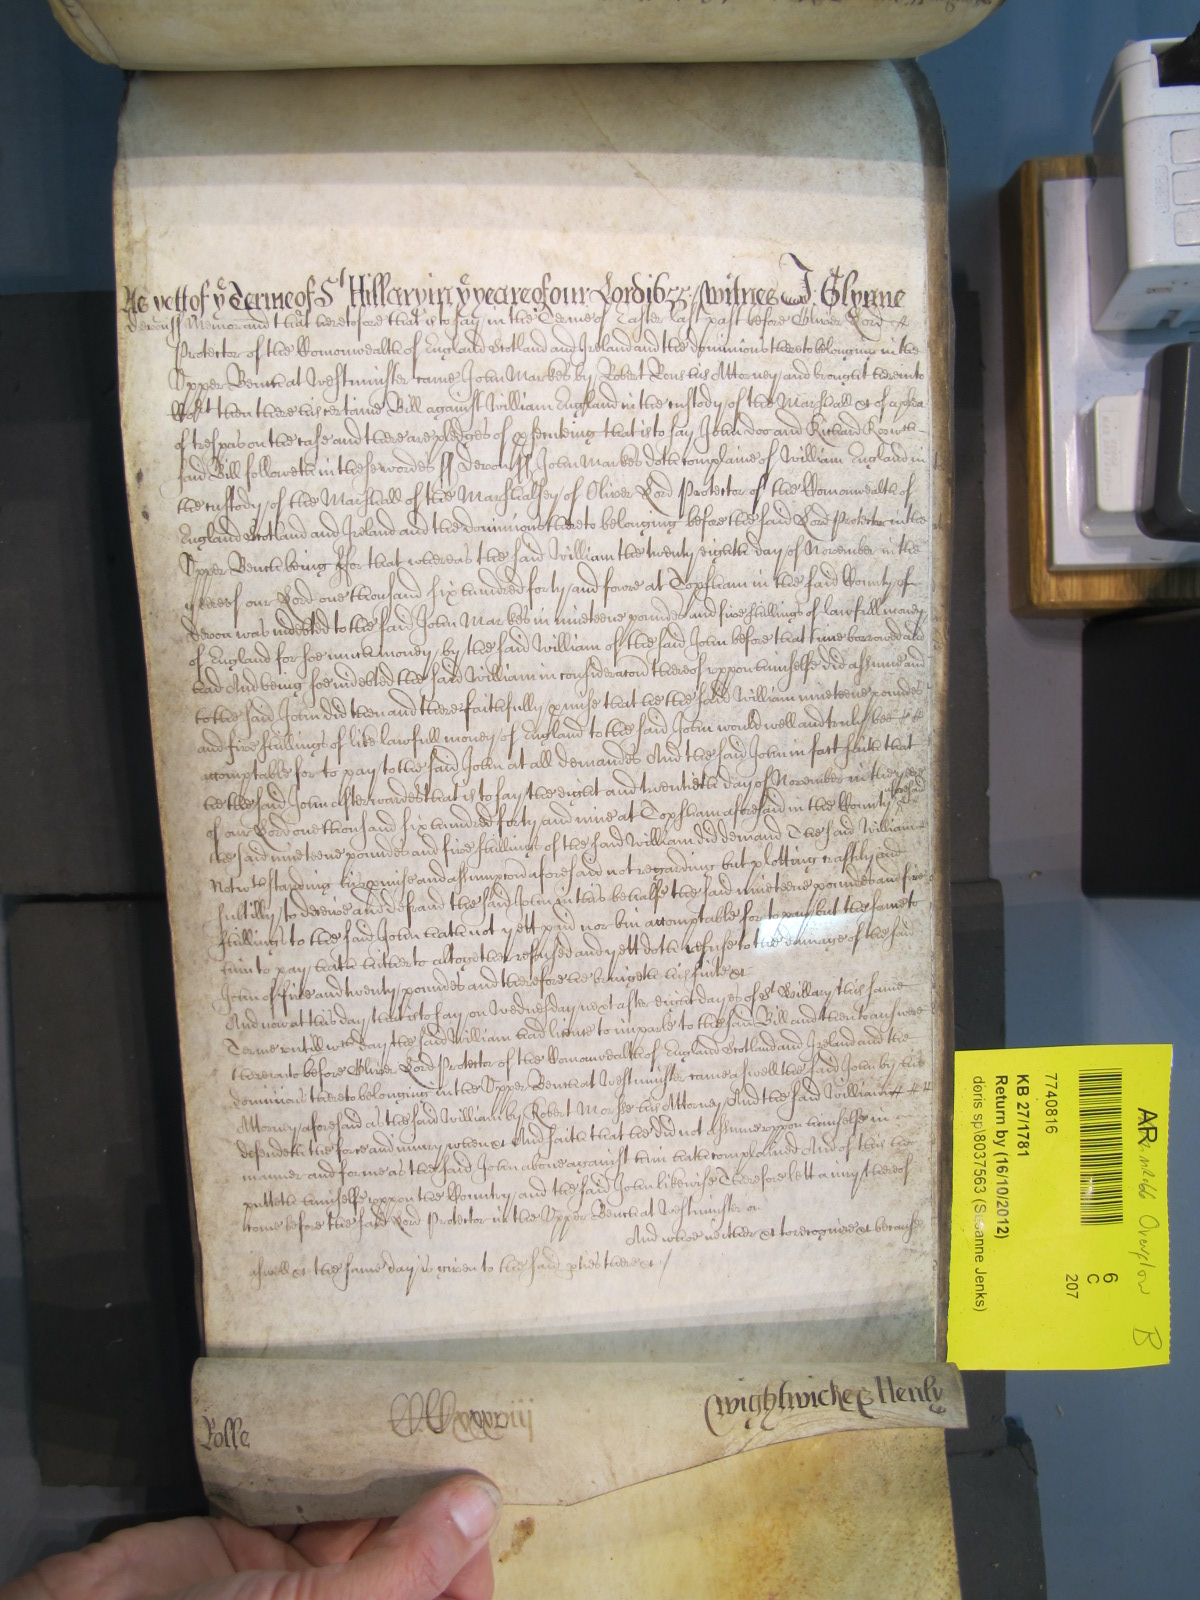 As yett of yᵉ Terme of Sᵗ Hillary in yᵉ yeare of our Lord 1655 witnes J: Glynne
Devon ss Memorand that heretofore that is to say in the Terme of Easter last past before Oliver Lord
Protector of the Comonwealth of England Scotland and Ireland and the dominions thereto belonging in the
Upper Bench at Westminster came John Markes by Robert Rous his Attorney and brought here into
Cort then there his certaine Bill against William England in the custody of the Marshall &c of a plea
of trespas on the case and there are pledges of psecuting that is to say John Doe and Richard Roe wᶜʰ
said Bill followeth in these wordes ss Devon ss John Markes doth complaine of William England in
the custody of the Marshall of the Marshalsey of Oliver Lord Protector of the Comonwealth of
England Scotland and Ireland and the dominions thereto belonging before the said Lord Protector in the
Upper Bench being For that whereas the said William the twenty eighth day of November in the
yeare of our Lord one thousand six hundred forty and fowre at Topsham in the said County of
Devon was indebted to the said John Markes in nineteene poundes and five shillings of lawfull money
of England for soe much money by the said William of the said John before that time borrowed and
had And being soe indebted the said William in consideracon thereof uppon himselfe did assume and
to the said John did then and there faithfully pmise that he the said William nineteene poundes
and five shillings of like lawfull money of England to the said John would well and truly bee
accomptable for to pay to the said John at all demandes And the said John in fact saith that
he the said John afterwardes that is to say the eight and twentieth day of November in the yeare
of our Lord one thousand six hundred forty and nine at Topsham aforesaid in the County aforesaid
the said nineteene poundes and five shillings of the said William did demand The said William
Notwᵗʰstanding his pmise and assumpcon aforesaid not regarding but plotting craftily and
subtilly to deceive and defraud the said John in this behalfe the said nineteene poundes and five
shillings to the said John hath not yett paid nor bin accomptable for to pay but the same to
him to pay hath hitherto altogether refused and yett doth refuse to the damage of the said
John of five and twenty poundes and therefore he bringeth his suite &c
And now at this day that is to say on Wednesday next after eight dayes of Sᵗ Hillary this same
Terme untill wᶜʰ day the said William had licence to imparle to the said Bill and then to answere
thereunto before Oliver Lord Protector of the Comonwealth of England Scotland and Ireland and the
dominions thereto belonging in the Upper Bench at Westminster came aswell the said John by his
Attorney aforesaid as the said William by Robert Morse his Attorney And the said William
defendeth the force and iniury when &c And saith that he did not assume uppon himselfe in
manner and forme as the said John above against him hath complained And of this he
putteth himselfe uppon the Country and the said John likewise Therefore lett a iury thereof
come before the said Lord Protector in the Upper Bench at Westminster on
And whoe neither &c to recognize &c because
aswell &c the same day is given to the said pties there &c /
Rolle
CCxxxviij
Wightwicke & Henly
AR
Overflow
B
6
C
207
7740816
KB 27/1781
Return by (16/10/2012)
doris sp\8037563 (Susanne Jenks)